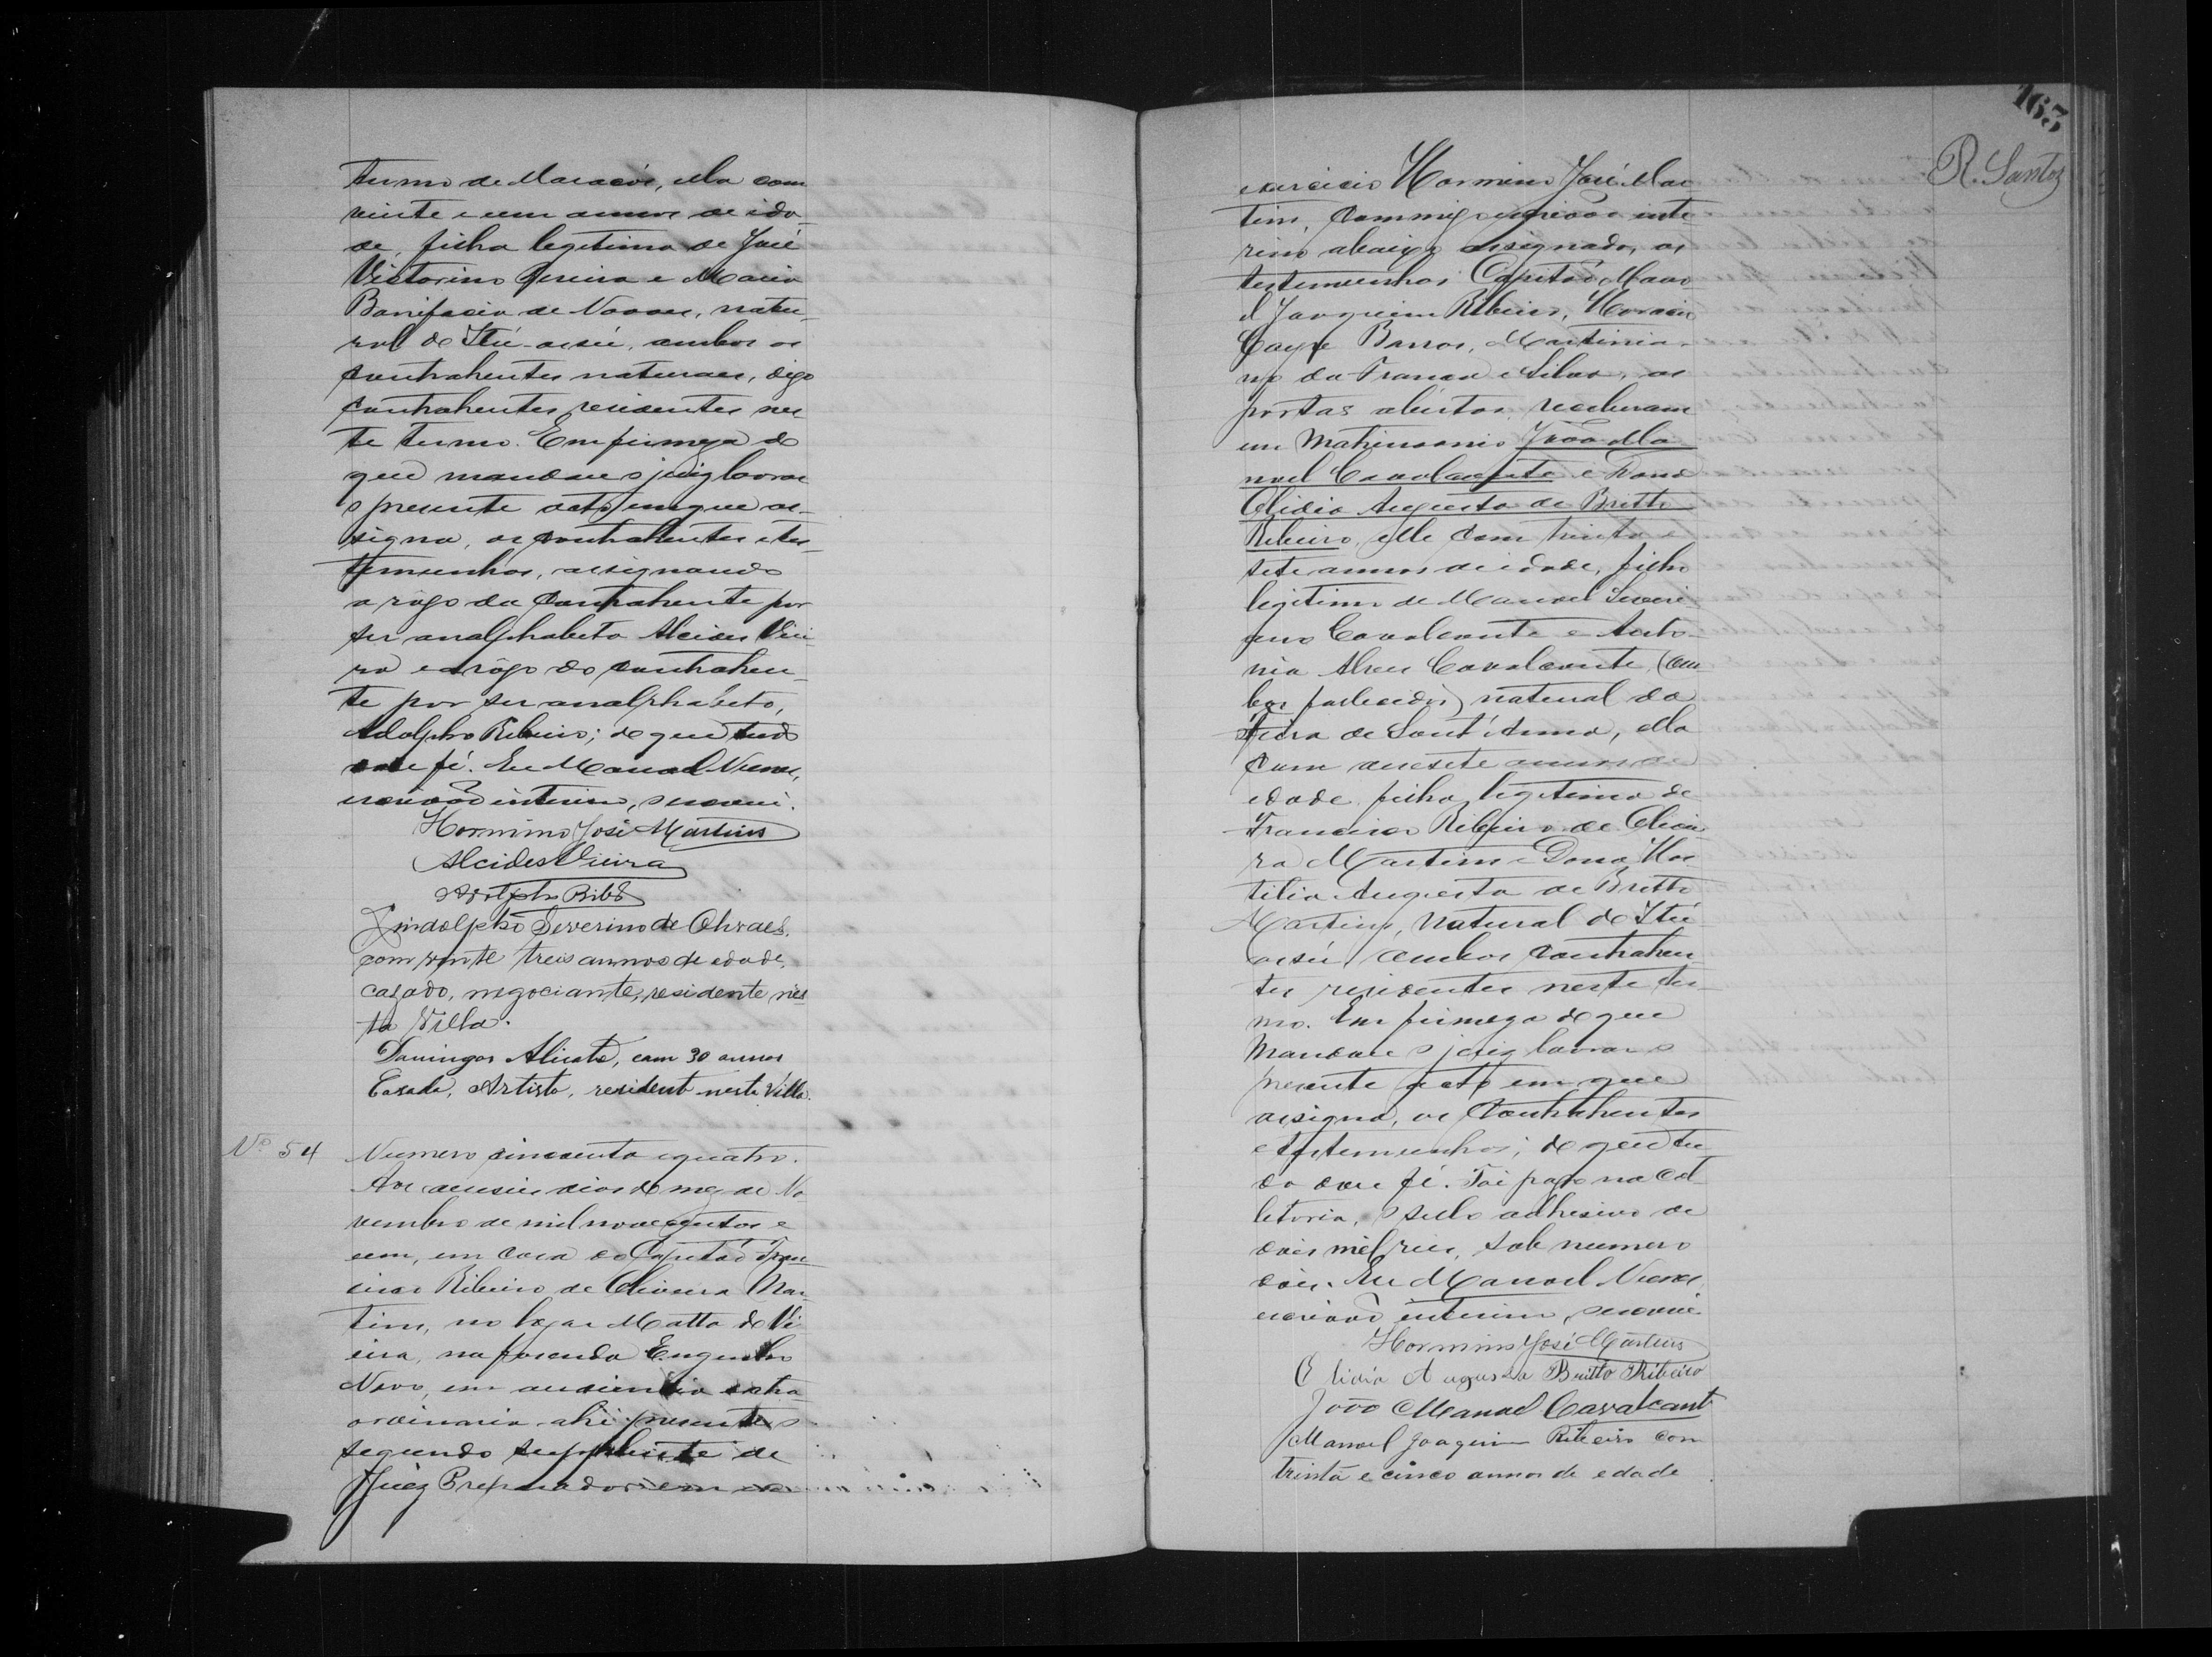 termo de Maracás, ella com
vinte e um annos de ida
de, filha legitima de José
Victorino Pereira e Maria
Bonifacia de Novaes, natu-
ral de Itú-assú, ambos os
contrahentes naturaes, digo
contrahentes residentes nes
te termo. Em firmeza do
que mandou o juiz lavrar
o presente acto em que as-
signa, os contrahentes e tes-
temunhas, assignando
a rôgo da contrahente por
ser analphabeta Alcides Viei
ra e a rôgo do contrahen-
te por ser analphabeto,
Adolpho Ribeiro; do que tudo
dou fé. Eu Manoel Nunes,
escrivão interino, o escrevi.
Hormino José Martins
Alcides Vieira
Adolpho Ribº
Lindolpho Severino de Novaes,
com vinte treis annos de edade,
cazado, negociante, residente nes
ta Villa.
Domingos Alicate, com 30 annos
Casado, Artista, resident nesta Villa.
Nº 54 Numero cincoenta e quatro.
Aos deseseis dias do mez de No
vembro de mil novecentos e
um, em casa do Capitão Fran
cisco Ribeiro de Oliveira Mar
tins, no logar Matta do Vi
eira, na fasenda Engenho
Novo, em audiencia extra
ordinaria ahi presente o
segundo supplente de
Juiz Preparador em ex
163
R. Santos
exercicio Hormino José Mar
tins, commigo escrivão inte
rino abaixo assignado, as
testemunhas Capitão Mano
el Joaquim Ribeiro, Horacio
Cayre Barros, Martinia-
no da Franca e Silva, as
portas abertas receberam
em matrimonio João Ma
noel Cavalcante e Dona
Elidia Augusta de Britto
Ribeiro, elle com trinta e
sete annos de idade, filho
legitimo de Manoel Severi
ano Cavalcante e Anto
nia Alves Cavalcante, (am
bos fallecidos) natural da
Feira de Sant'Anna, ella
com desesete annos de
edade, filha legitima de
Francisco Ribeiro de Olivei
ra Martins e Dona Hos
tilia Augusta de Britto
Martins, natural de Itú
assú, ambos contrahen
tes residentes neste ter
mo. Em firmeza do que
mandou o juiz lavrar o
presente acto em que
assigna, os contrahentes
e testemunhas; do que tu
do dou fé. Foi pago na Col
letoria, o sello adhesivo de
dois mil reis, sob numero
dois. Eu Manoel Nunes
escrivão interino, o escrevi
Hormino José Martins
Elidia Augusta Britto Ribeiro
João Manoel Cavalcant
Manoel Joaquim Ribeiro com
trinta e cinco annos de edade